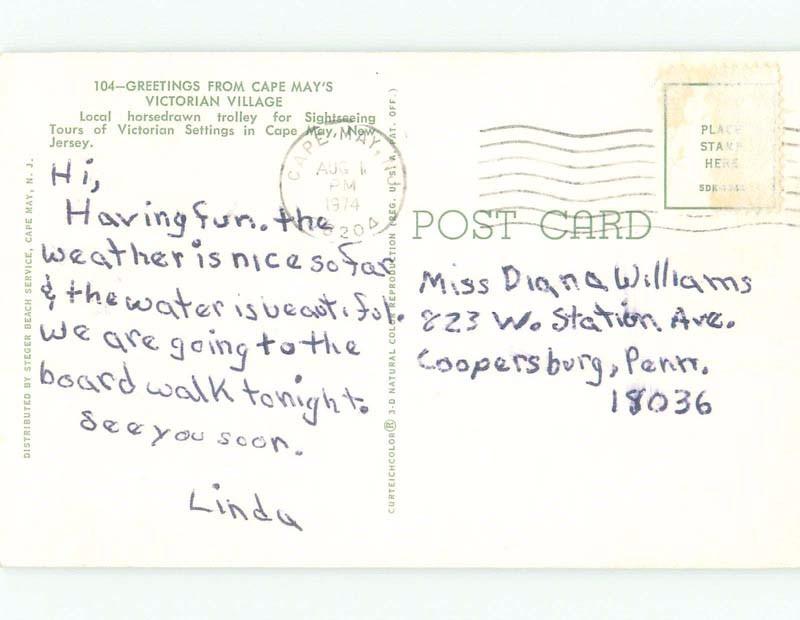 104—GREETINGS FROM CAPE MAY'S
VICTORIAN VILLAGE
Local horsedrawn trolley for Sightseeing
Tours of Victorian Settings in Cape May, New
Jersey.
Hi,
Having fun. the
weather is nice so far
& the water is beautiful.
we are going to the
board walk tonight.
See you soon.
Linda
DISTRIBUTED BY STEGER BEACH SERVICE, CAPE MAY, N. J.
CURTEICHCOLOR® 3-D NATURAL COLOR REPRODUCTION (REG. U. S. A. PAT. OFF.)
CAPE MAY, NJ
AUG 1
PM
1974
08204
POST CARD
PLACE
STAMP
HERE
Miss Diana Williams
823 W. Station Ave.
Coopersburg, Penn.
18036